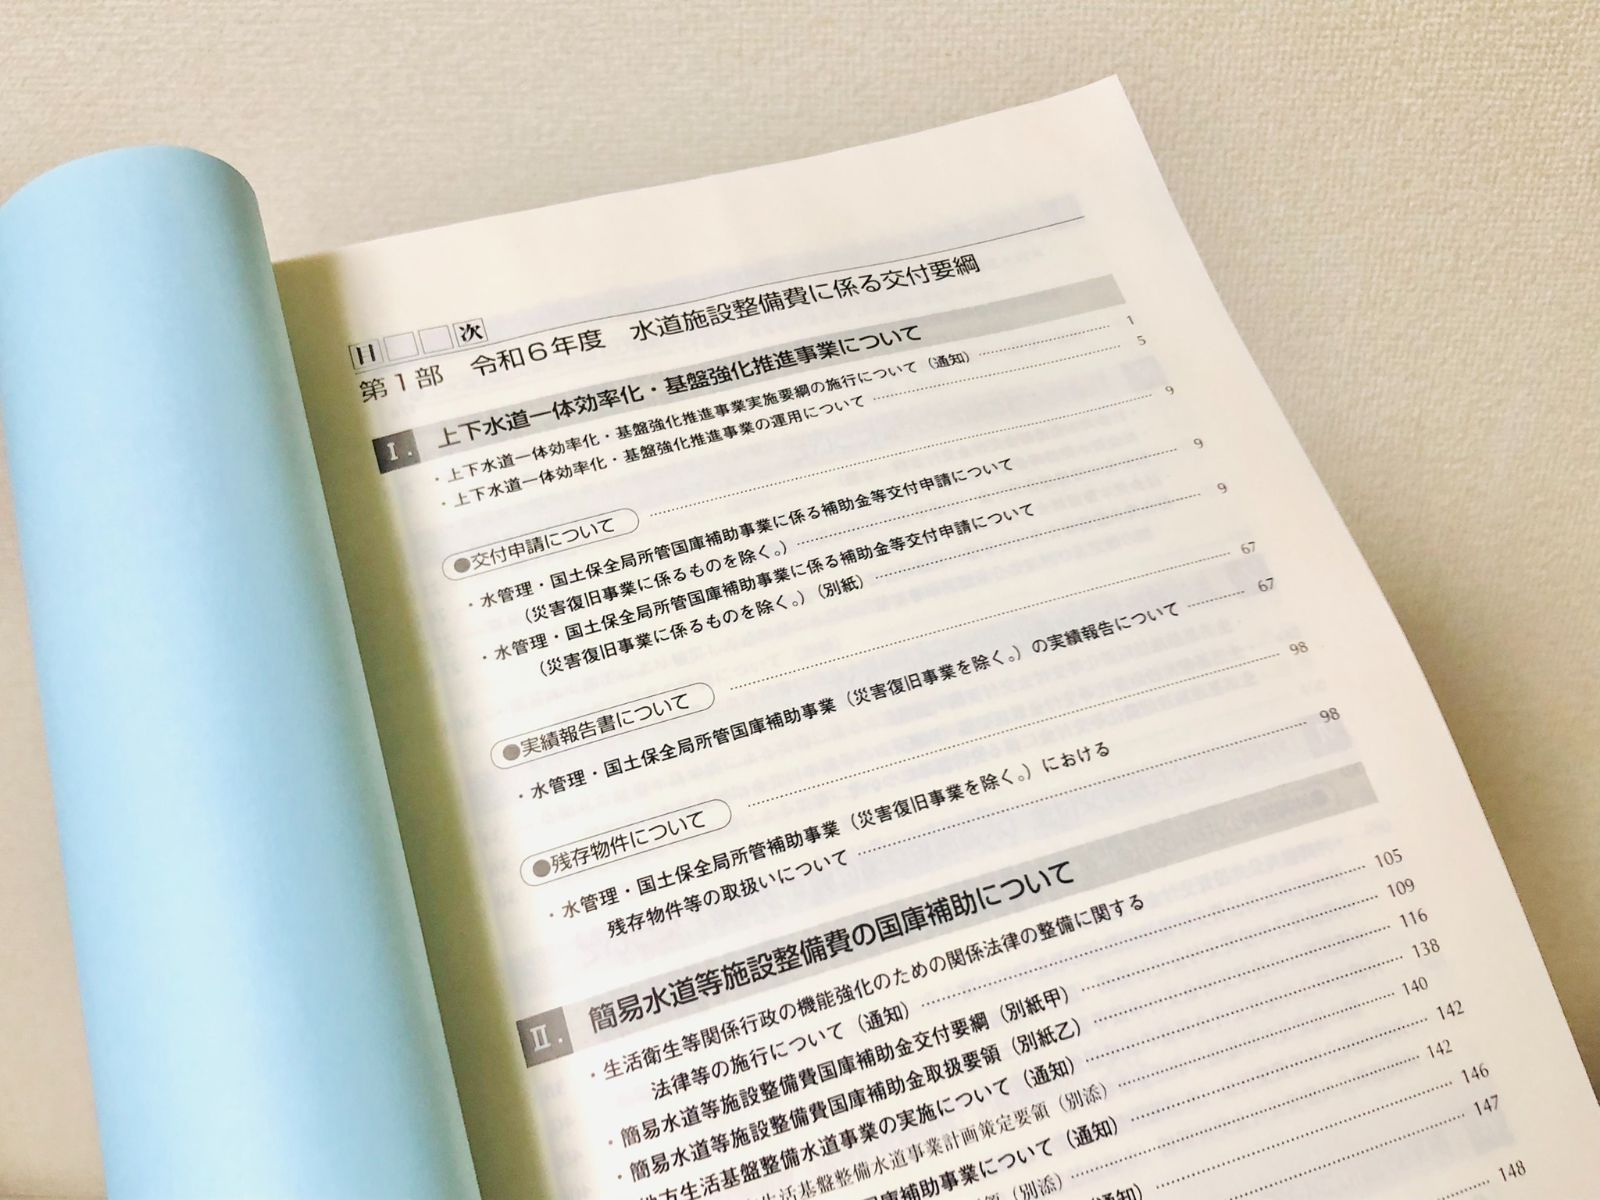 目次
第1部 令和6年度 水道施設整備費に係る交付要綱
Ⅰ. 上下水道一体効率化・基盤強化推進事業について
・上下水道一体効率化・基盤強化推進事業実施要綱の施行について（通知） 1
・上下水道一体効率化・基盤強化推進事業の運用について 5
●交付申請について 9
・水管理・国土保全局所管国庫補助事業に係る補助金等交付申請について
（災害復旧事業に係るものを除く。） 9
・水管理・国土保全局所管国庫補助事業に係る補助金等交付申請について
（災害復旧事業に係るものを除く。）（別紙） 9
●実績報告書について 67
・水管理・国土保全局所管国庫補助事業（災害復旧事業を除く。）の実績報告について 67
●残存物件について 98
・水管理・国土保全局所管補助事業（災害復旧事業を除く。）における
残存物件等の取扱いについて 98
Ⅱ. 簡易水道等施設整備費の国庫補助について
・生活衛生等関係行政の機能強化のための関係法律の整備に関する
法律等の施行について（通知） 105
・簡易水道等施設整備費国庫補助金交付要綱（別紙甲） 109
・簡易水道等施設整備費国庫補助金取扱要領（別紙乙） 116
地方生活基盤整備水道事業の実施について（通知） 138
生活基盤整備水道事業計画策定要領（別添） 140
国庫補助事業について（通知） 142
領（別添） 142
（通知） 146
147
148